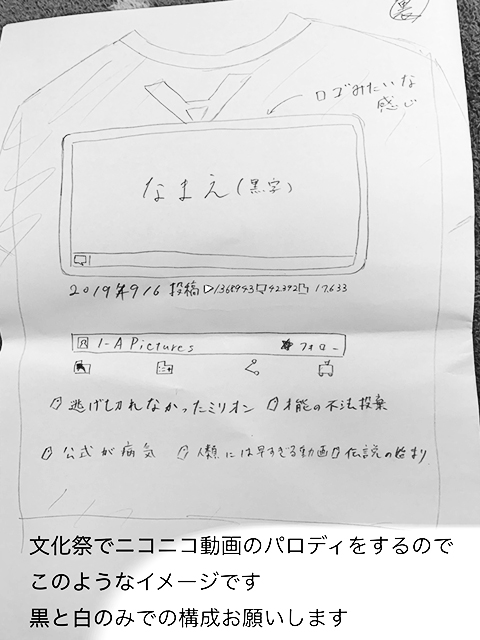 黒
ロゴみたいな
感じ
なまえ(黒字)
2019年9/6 投稿 ▷1368943 42392 17,633
R 1-A Pictures ★フォロー
逃げ切れなかったミリオン 才能の不法投棄
公式が病気 人類には早すぎる動画 伝説の始まり
文化祭でニコニコ動画のパロディをするので
このようなイメージです
黒と白のみでの構成お願いします